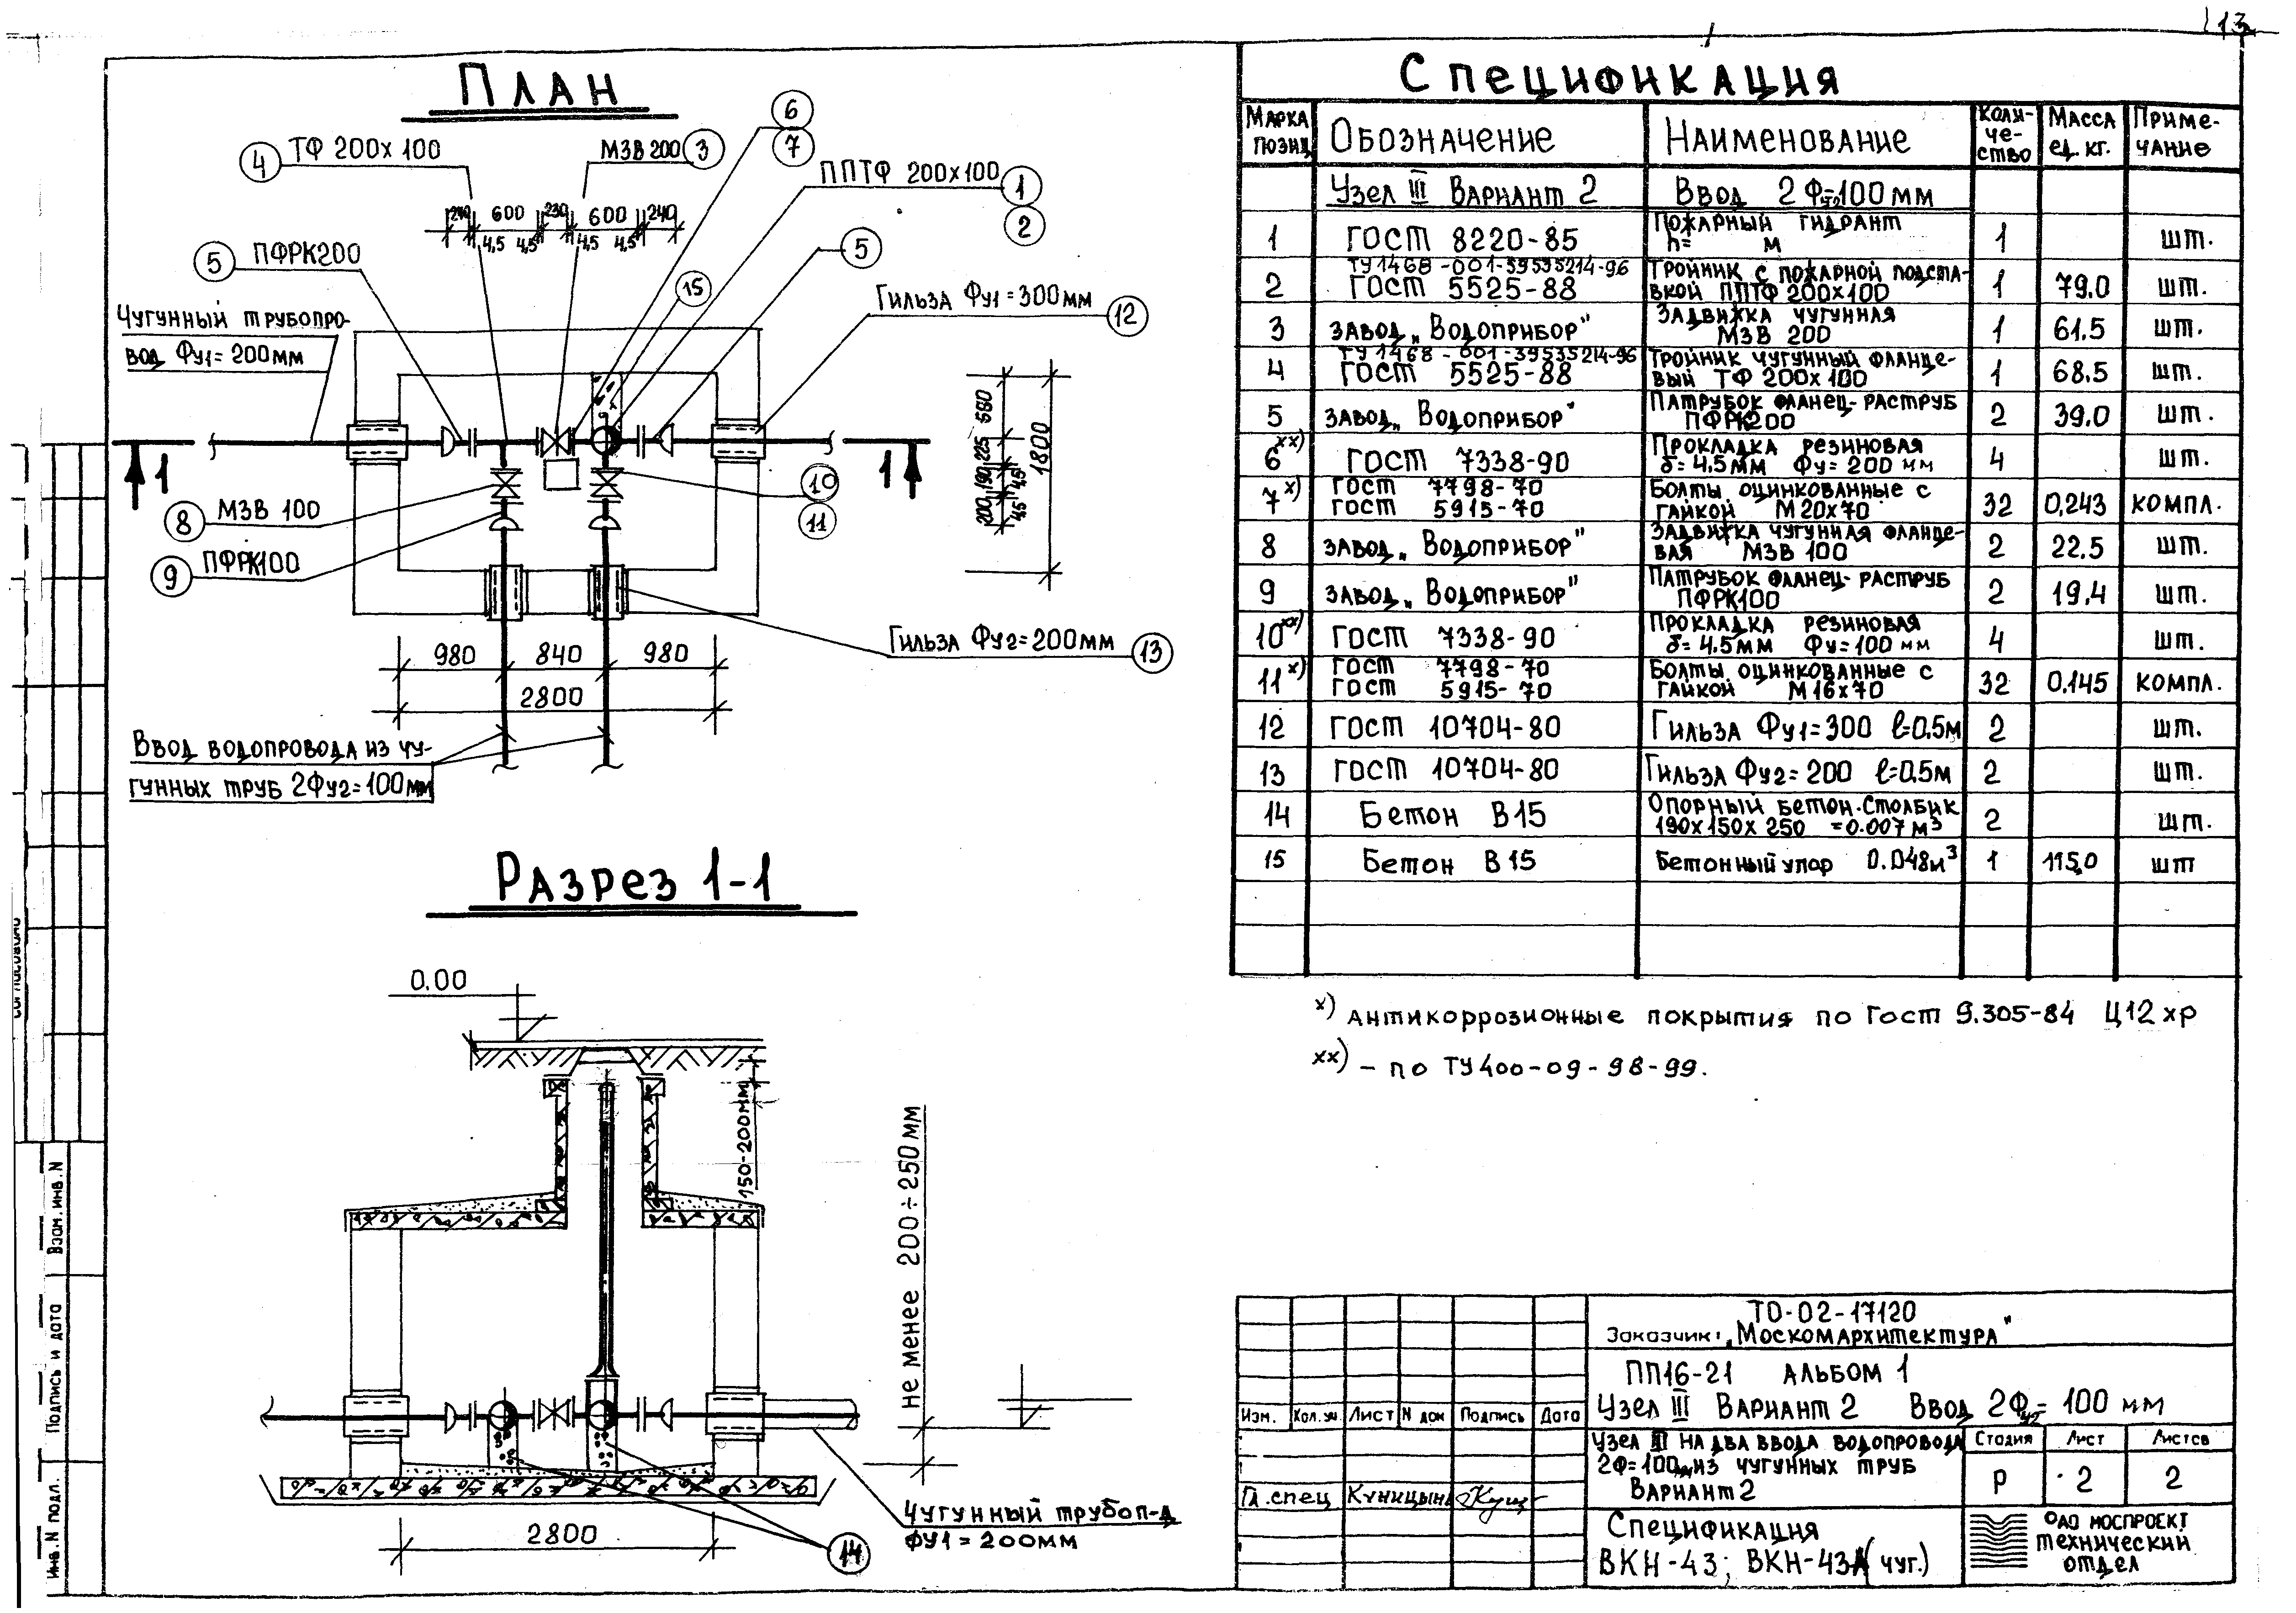 13
План
4 ТФ 200х100
МЗВ 200 3
6
7
ППТФ 200х100
1
2
240 600 230 600 240
4,5 4,5 4,5 4,5
5 ПФРК200
5
15
Гильза Фу1=300мм
12
Чугунный трубопро-
вод Фу1=200мм
580
225
190
4,5
200
4,5
1800
1
1
10
11
8 МЗВ 100
9 ПФРК100
Гильза Фу2=200мм 13
980 840 980
2800
Ввод водопровода из чу-
гунных труб 2Фу2=100мм
Разрез 1-1
0.00
150-200мм
не менее 200÷250мм
Чугунный трубоп-д
фу1=200мм
2800
14
Спецификация
Марка позиц. Обозначение Наименование Коли-че-ство Масса ед. кг. Приме-чание
Узел III Вариант 2 Ввод 2Фу2=100мм
1 ГОСТ 8220-85 Пожарный гидрант h= м 1 шт.
2 ТУ 1468-001-39535214-96 ГОСТ 5525-88 Тройник с пожарной подста-вкой ППТФ 200х100 1 79.0 шт.
3 завод „Водоприбор" Задвижка чугунная МЗВ 200 1 61.5 шт.
4 ТУ 1468-001-39535214-96 ГОСТ 5525-88 Тройник чугунный фланце-вый ТФ 200х100 1 68.5 шт.
5 завод „Водоприбор" Патрубок фланец-раструб ПФРК200 2 39.0 шт.
6 хх) ГОСТ 7338-90 Прокладка резиновая δ=4.5мм Фу=200мм 4 шт.
7 х) ГОСТ 7798-70 ГОСТ 5915-70 Болты оцинкованные с гайкой М20х70 32 0,243 компл.
8 завод „Водоприбор" Задвижка чугунная фланце-вая МЗВ 100 2 22.5 шт.
9 завод „Водоприбор" Патрубок фланец-раструб ПФРК100 2 19.4 шт.
10 хх) ГОСТ 7338-90 Прокладка резиновая δ=4.5мм Фу=100мм 4 шт.
11 х) ГОСТ 7798-70 ГОСТ 5915-70 Болты оцинкованные с гайкой М16х70 32 0.145 компл.
12 ГОСТ 10704-80 Гильза Фу1=300 ℓ=0.5м 2 шт.
13 ГОСТ 10704-80 Гильза Фу2=200 ℓ=0.5м 2 шт.
14 Бетон В15 Опорный бетон.столбик 190х150х250 =0.007м³ 2 шт.
15 Бетон В15 Бетонный упор 0.048м³ 1 115.0 шт
х) Антикоррозионные покрытия по Гост 9.305-84 Ц12хр
хх) - по ТУ400-09-98-99.
ТО-02-17120
Заказчик: „Москомархитектура"
ПП16-21 Альбом 1
Узел III Вариант 2 Ввод 2Фу2=100 мм
Изм. Кол.уч. Лист N док Подпись Дата
Узел III на два ввода водопровода
2Ф=100мм из чугунных труб
Вариант 2
Стадия Лист Листов
Р 2 2
Гл.спец Куницына
Спецификация
ВКН-43; ВКН-43А (чуг.)
ОАО Моспроект
технический
отдел
Согласовано
Взам.инв.N
Подпись и дата
Инв.N подл.